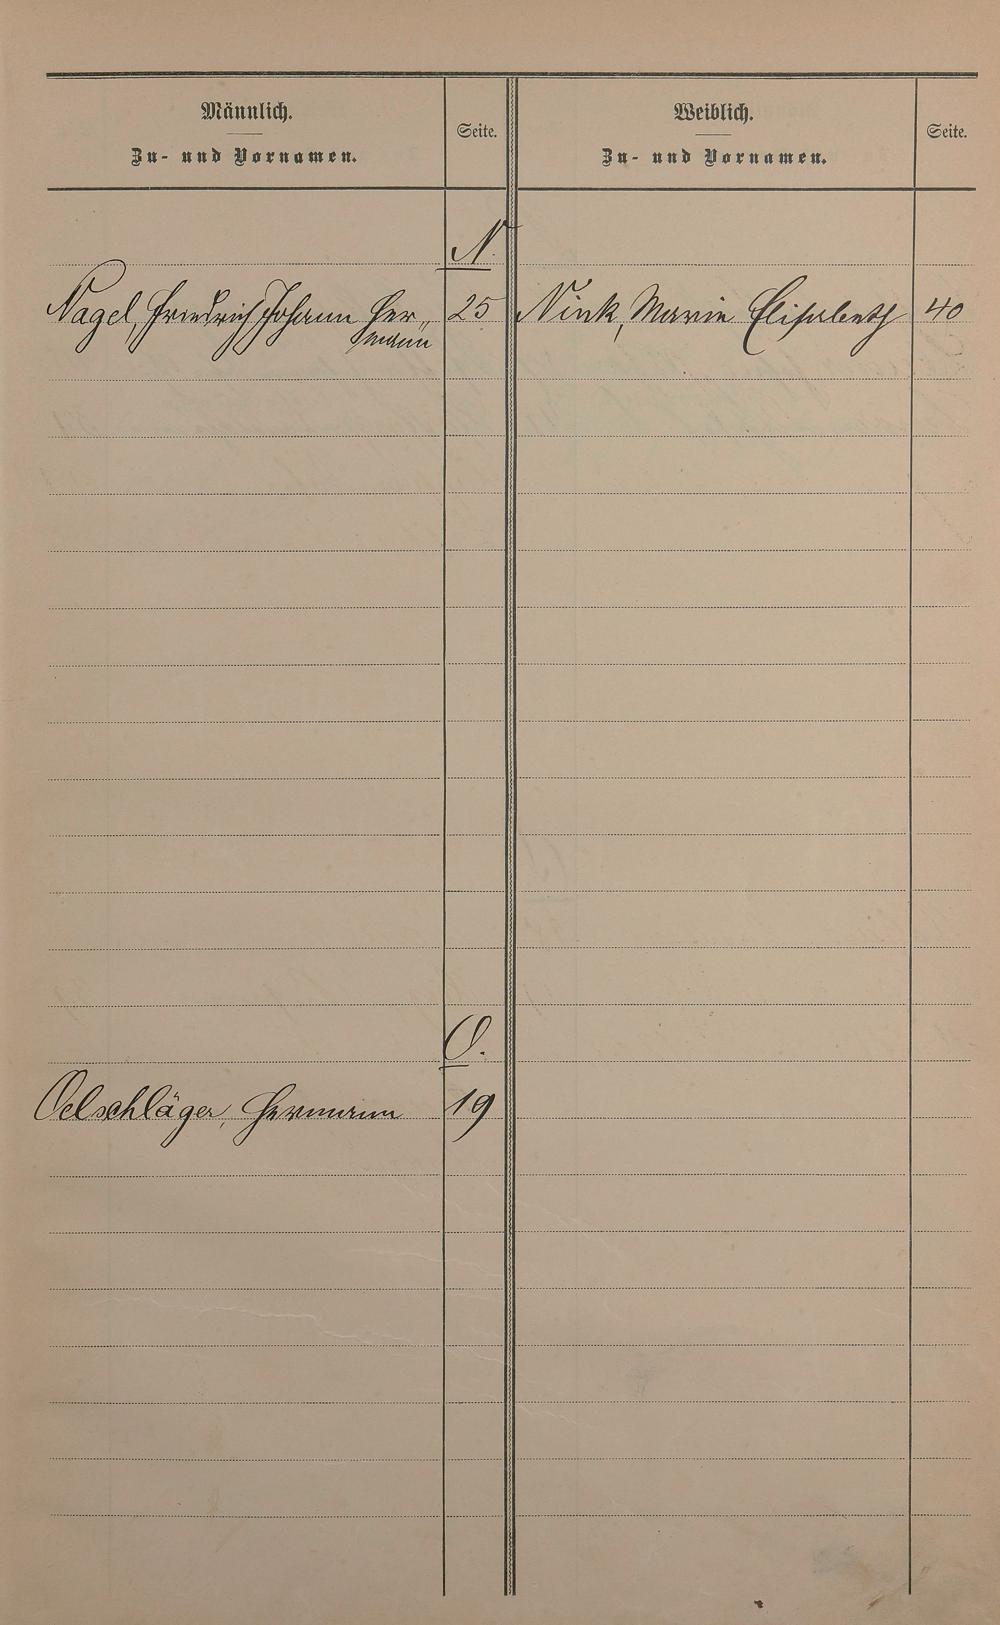 Männlich.
Zu- und Vornamen.
Seite.
Weiblich.
Zu- und Vornamen.
Seite.
N.
Nagel, Friedrich Johann Her„
mann
25
Nink, Marie Elisabeth
40
O.
Oelschläger, Hermann
19